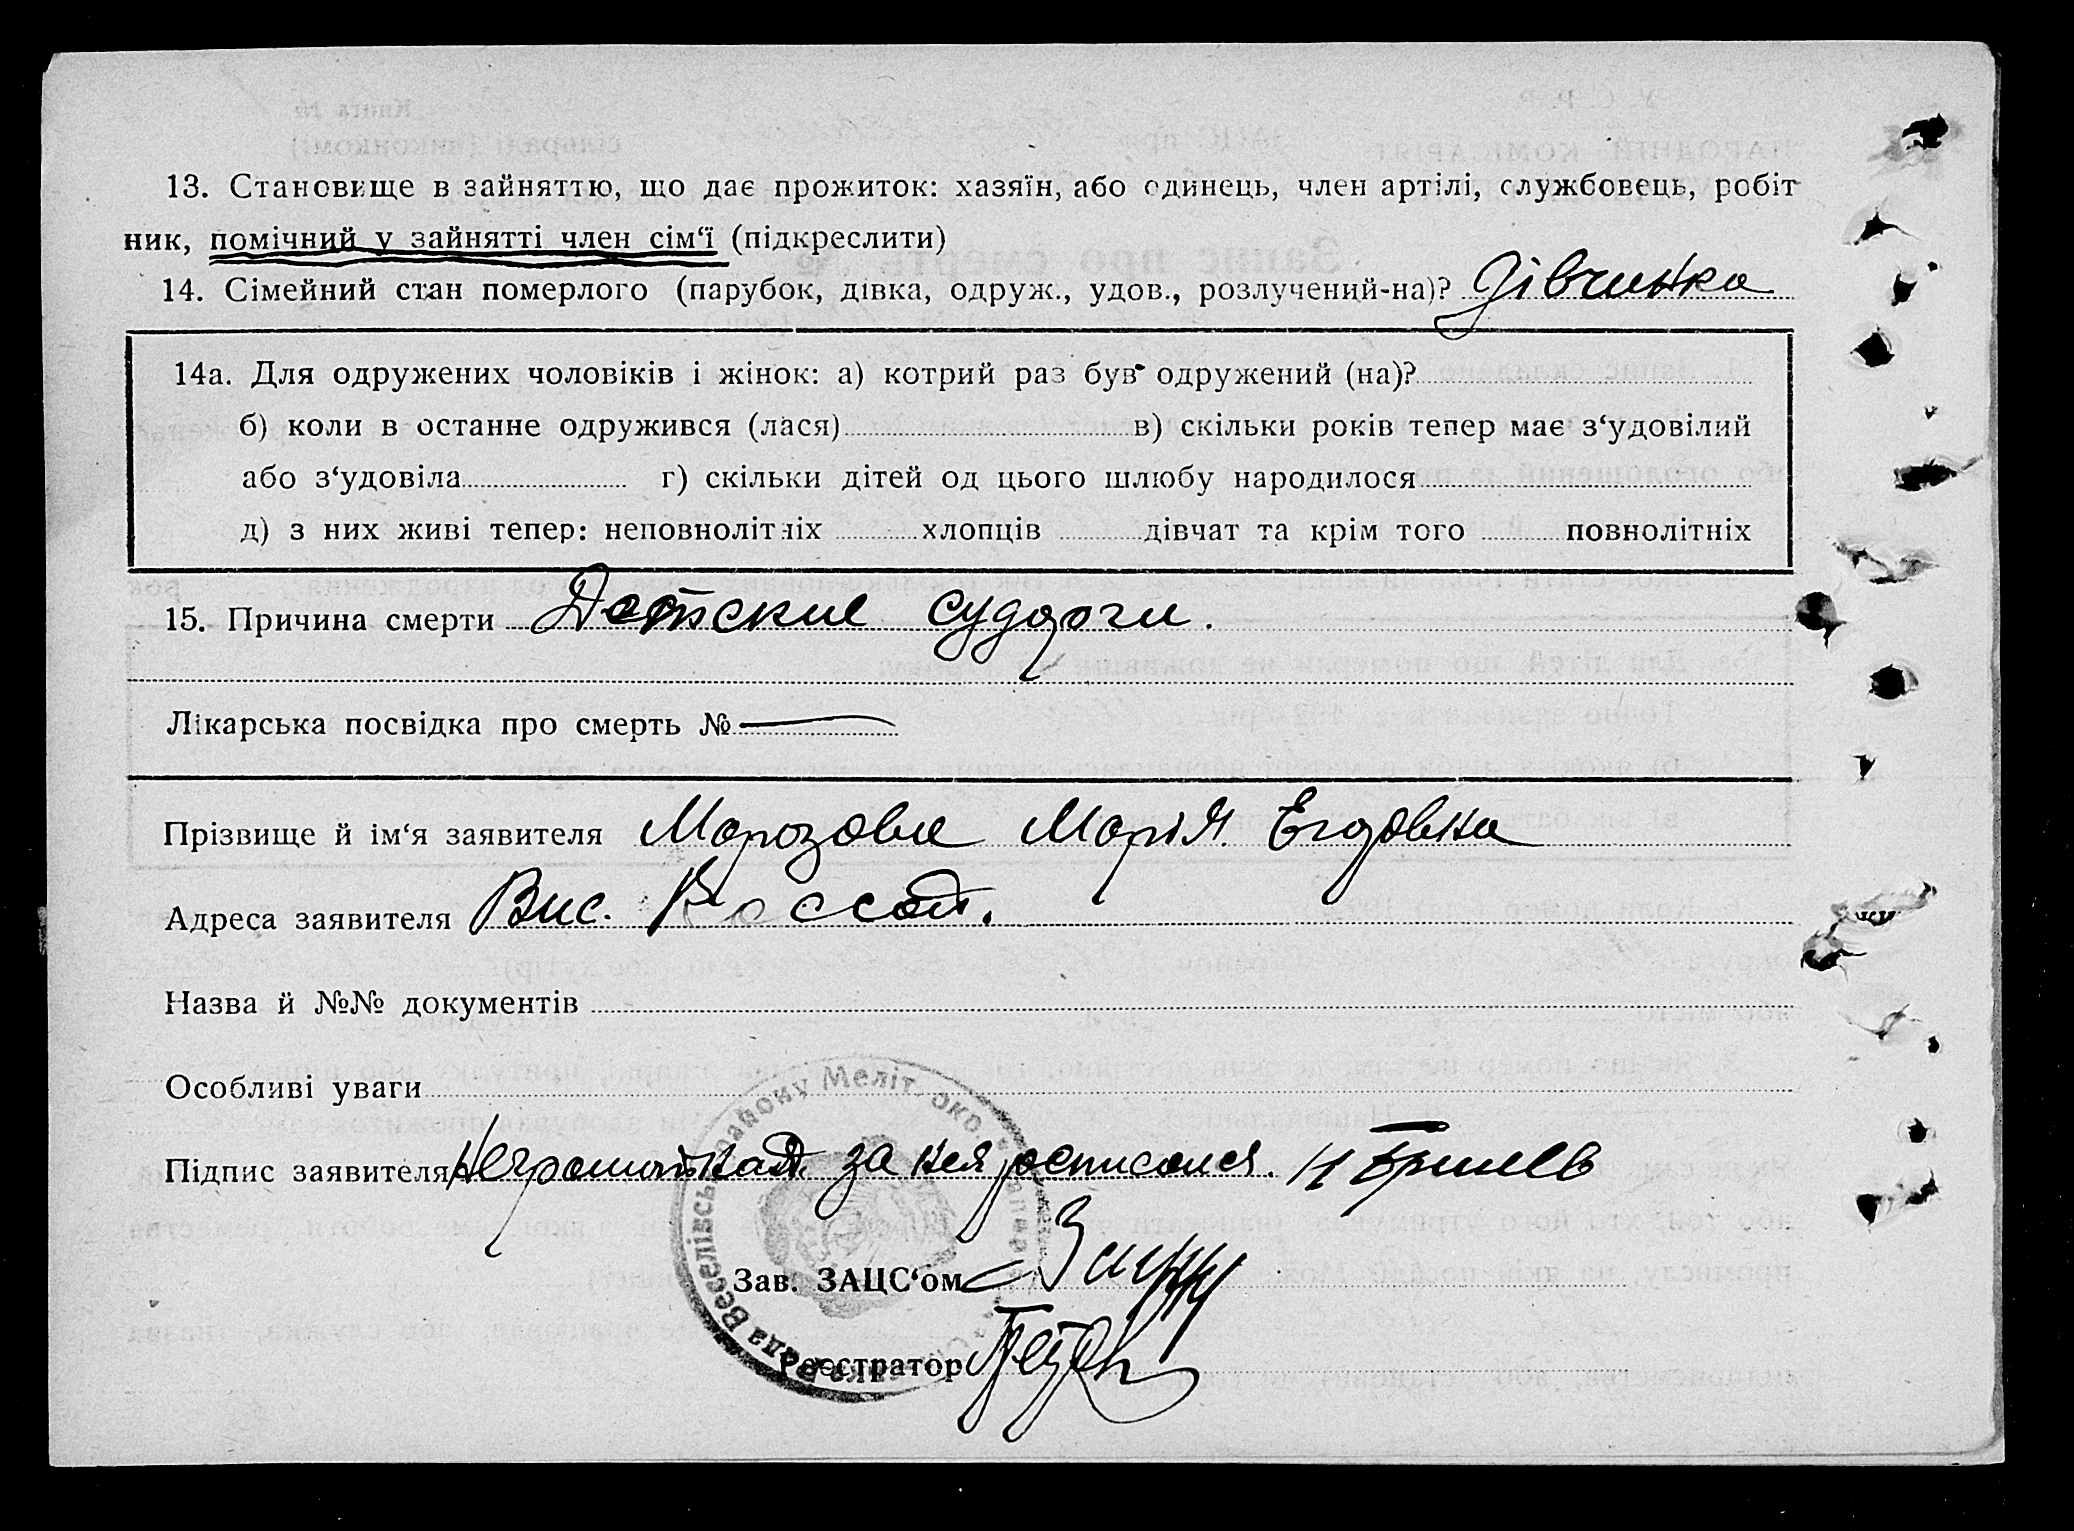 13. Становище в зайняттю, що дає прожиток: хазяїн, або одинець, член артілі, службовець, робіт-
ник, помічний у зайнятті член сім‘ї (підкреслити)
14. Сімейний стан померлого (парубок, дівка, одруж., удов., розлучений-на)? Дівчинка
14а. Для одружених чоловіків і жінок: а) котрий раз був одружений (на)?
б) коли в останне одружився (лася) в) скільки років тепер має з‘удовілий
або з‘удовіла г) скільки дітей од цього шлюбу народилося
д) з них живі тепер: неповнолітніх хлопців дівчат та крім того повнолітніх
15. Причина смерти Детские судороги.
Лікарська посвідка про смерть №
Прізвище й ім‘я заявителя Морозова Марія
Адреса заявителя Вис.
Назва й №№ документів
Особливі уваги
Підпис заявителя за нея росписался.
Зав. ЗАЦС‘ом
Реєстратор
району Меліт. окр.